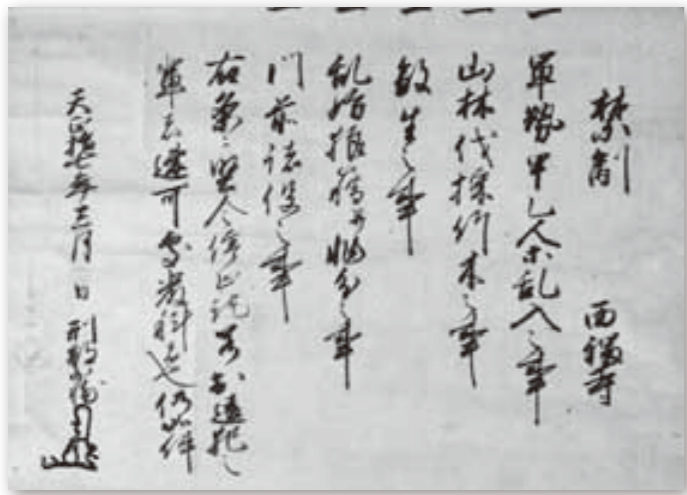 禁制 西福寺
一 軍勢甲乙人等乱入之事
一 山林伐採竹木之事
一 殺生之事
一 乱妨狼藉并之事
一 門前諸役之事
右条々堅令停止訖若於違犯之
輩者速可處嚴科者也仍如件
天正拾七年三月 日 刑部輔